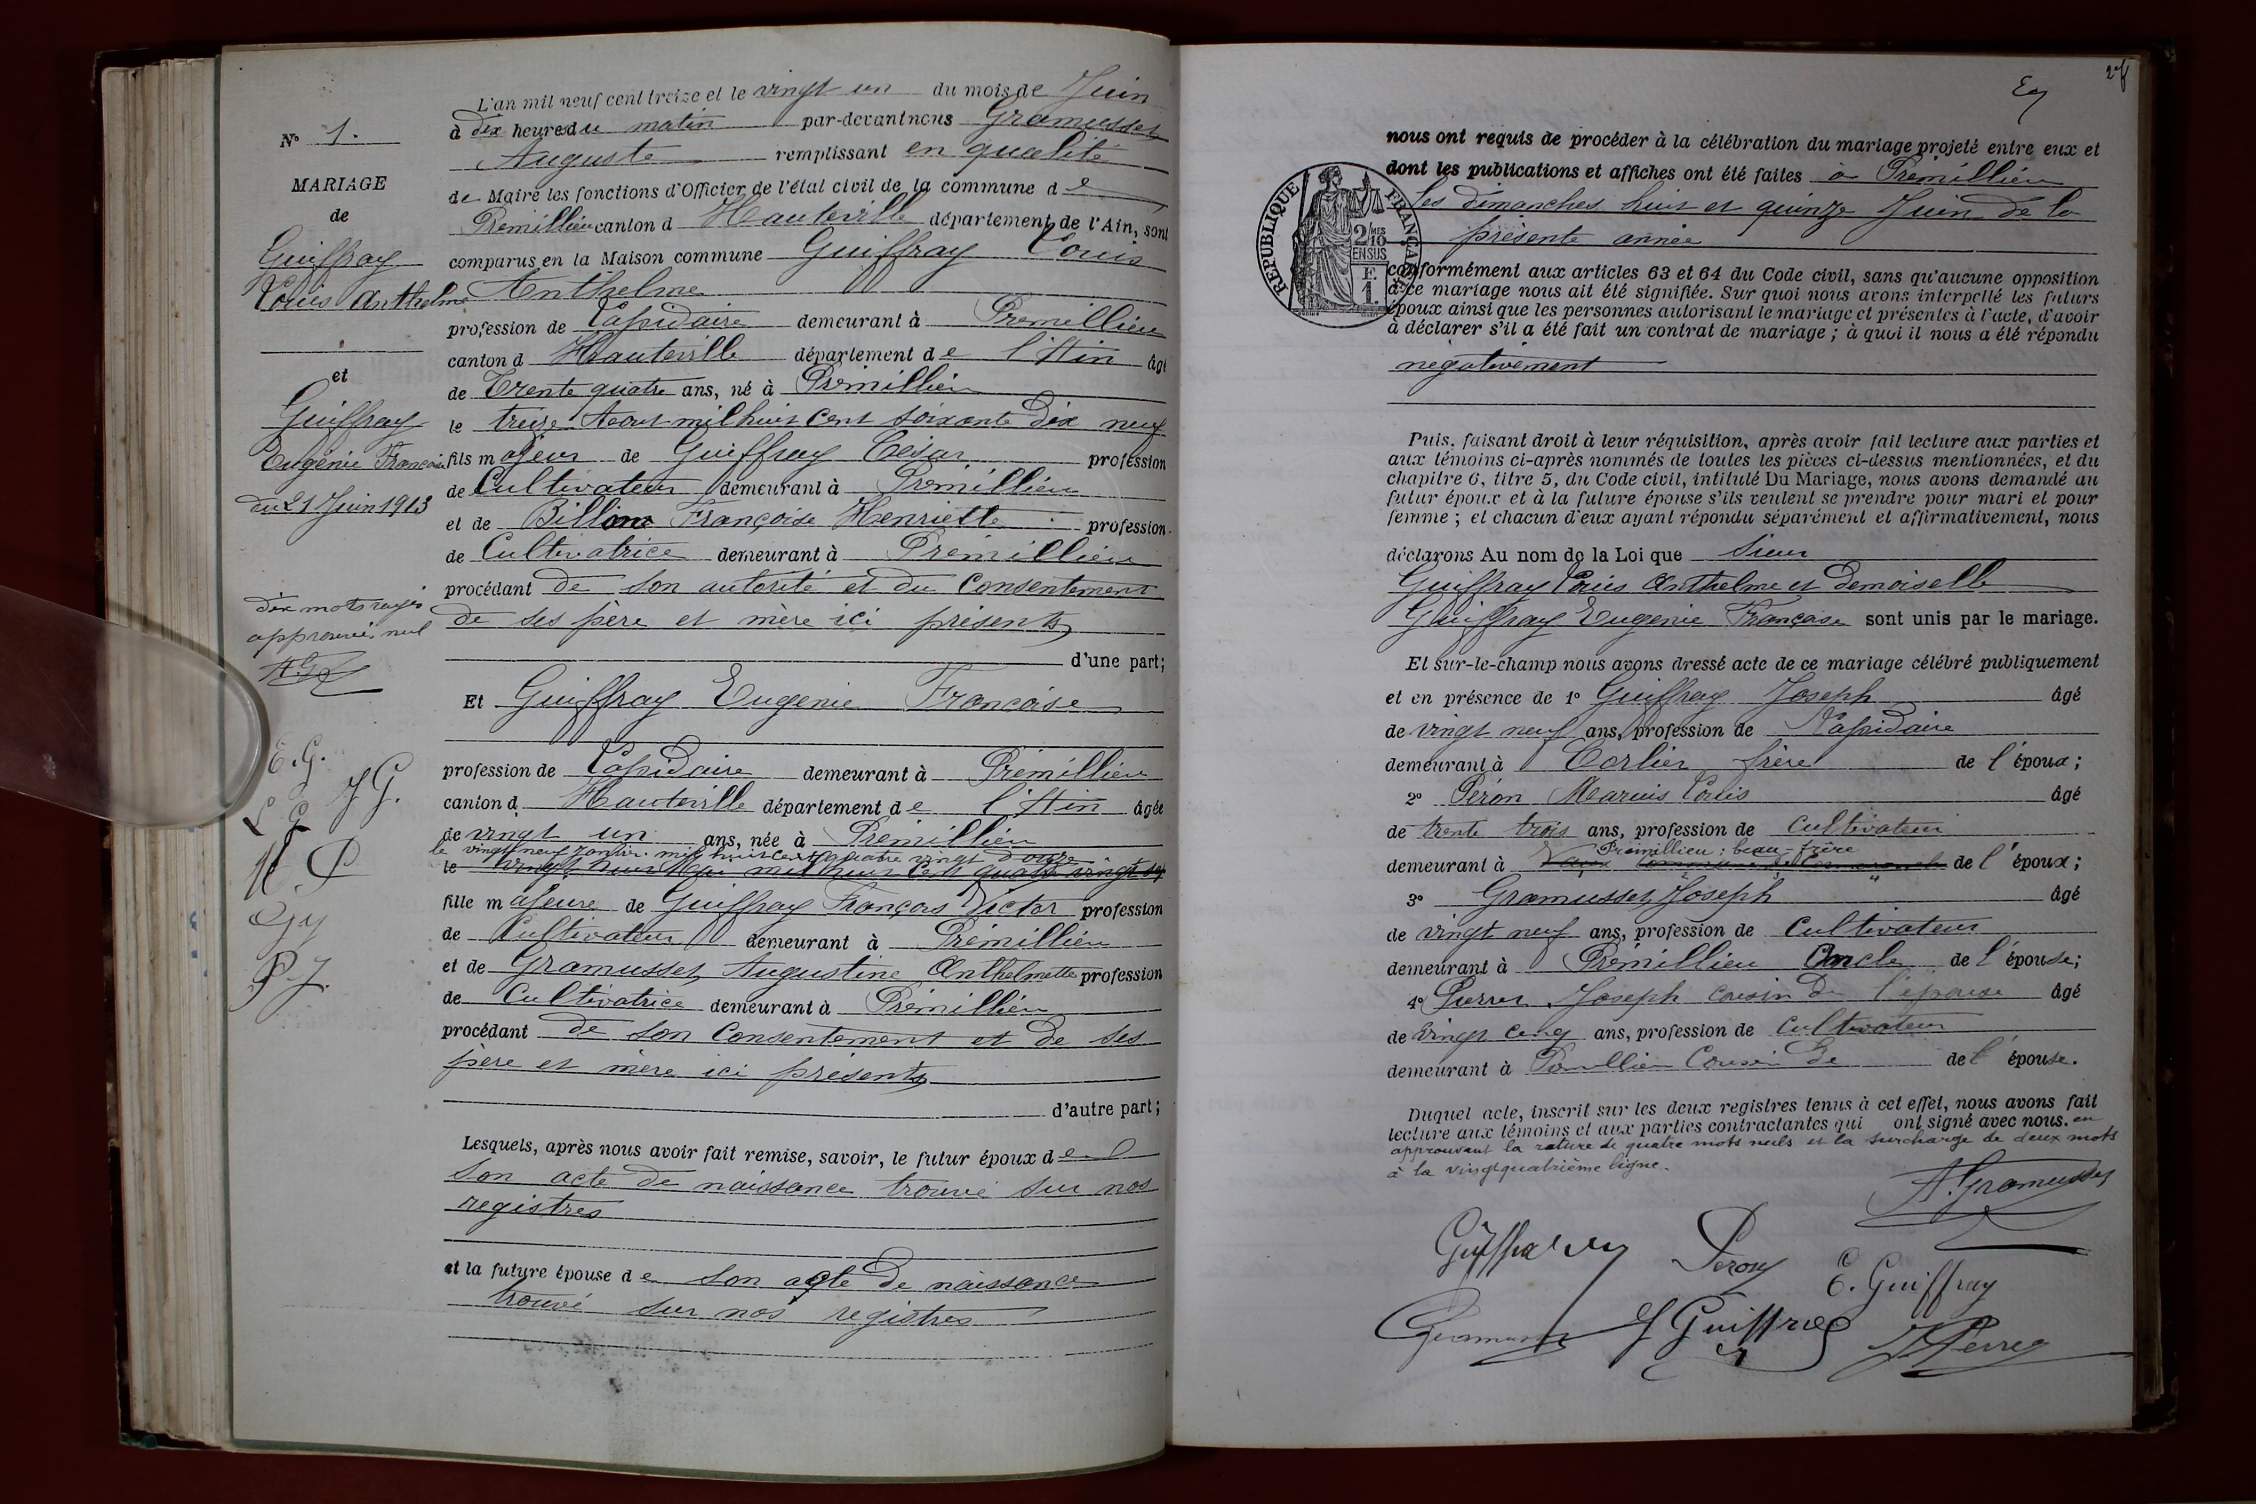 L'an mil neuf cent treize et le vingt un du mois de Juin
à dix heures du matin par-devant nous Gramusset
Auguste remplissant en qualité
de Maire les fonctions d'Officier de l'état civil de la commune de
Prémillieu canton d Hauteville département de l'Ain, sont
comparus en la Maison commune Guiffray Louis
Anthelme
profession de Lapidaire demeurant à Prémillieu
canton d Hauteville département de l'Ain âgé
de Trente quatre ans, né à Prémillieu
le treize Aout mil huit cent soixante dix neuf
fils majeur de Guiffray César profession
de Cultivateur demeurant à Prémillieu
et de Billion Françoise Henriette profession
de Cultivatrice demeurant à Prémillieu
procédant de son autorité et du Consentement
de ses père et mère ici présents
d'une part;
Et Guiffray Eugénie Françoise
profession de Lapidaire demeurant à Prémillieu
canton d Hauteville département de l'Ain âgée
de vingt un ans, née à Prémillieu
le vingt neuf Janvier mil huit cent quatre vingt douze
le vingt huit Mai mil huit cent quatre vingt
fille majeure de Guiffray François Victor profession
de Cultivateur demeurant à Prémillieu
et de Gramusset Augustine Anthelmette profession
de Cultivatrice demeurant à Prémillieu
procédant de son Consentement et de ses
père et mère ici présents
d'autre part;
Lesquels, après nous avoir fait remise, savoir, le futur époux de
son acte de naissance trouvé sur nos
registres
et la future épouse de son acte de naissance
trouvé sur nos registres
N° 1.
MARIAGE
de
Guiffray
Louis Anthelme
et
Guiffray
Eugénie Françoise
du 21 Juin 1913
dix mots rayés
approuvé nul
AG
E.G.
J G.
L G
M P
Gy
P J.
27
nous ont requis de procéder à la célébration du mariage projeté entre eux et
dont les publications et affiches ont été faites à Prémillieu
les dimanches huit et quinze Juin de la
présente année
RÉPUBLIQUE FRANÇAISE
2/10 MES
EN SUS
F.
1.
conformément aux articles 63 et 64 du Code civil, sans qu'aucune opposition
à ce mariage nous ait été signifiée. Sur quoi nous avons interpellé les futurs
époux ainsi que les personnes autorisant le mariage et présentes à l'acte, d'avoir
à déclarer s'il a été fait un contrat de mariage ; à quoi il nous a été répondu
négativement
Puis, faisant droit à leur réquisition, après avoir fait lecture aux parties et
aux témoins ci-après nommés de toutes les pièces ci-dessus mentionnées, et du
chapitre 6, titre 5, du Code civil, intitulé Du Mariage, nous avons demandé au
futur époux et à la future épouse s'ils veulent se prendre pour mari et pour
femme ; et chacun d'eux ayant répondu séparément et affirmativement, nous
déclarons Au nom de la Loi que Sieur
Guiffray Louis Anthelme et Demoiselle
Guiffray Eugenie Françoise sont unis par le mariage.
Et sur-le-champ nous avons dressé acte de ce mariage célébré publiquement
et en présence de 1° Guiffray Joseph âgé
de vingt neuf ans, profession de Lapidaire
demeurant à Corlier frère de l'époux;
2° Péron Marius Louis âgé
de trente trois ans, profession de Cultivateur
Prémillieu : beau-frère
demeurant à de l'époux;
3° Gramusset Joseph âgé
de vingt neuf ans, profession de Cultivateur
demeurant à Prémillieu Oncle de l'épouse;
4° Perret Joseph cousin de l'épouse âgé
de vingt cinq ans, profession de Cultivateur
demeurant à Prémillieu Cousin de de l'épouse.
Duquel acte, inscrit sur les deux registres tenus à cet effet, nous avons fait
lecture aux témoins et aux parties contractantes qui ont signé avec nous. en
approuvant la rature de quatre mots nuls et la surcharge de deux mots
à la vingtquatrième ligne.
A. Gramusset
Guiffray Peron
E. Guiffray
Gramusset J Guiffray
J Perret